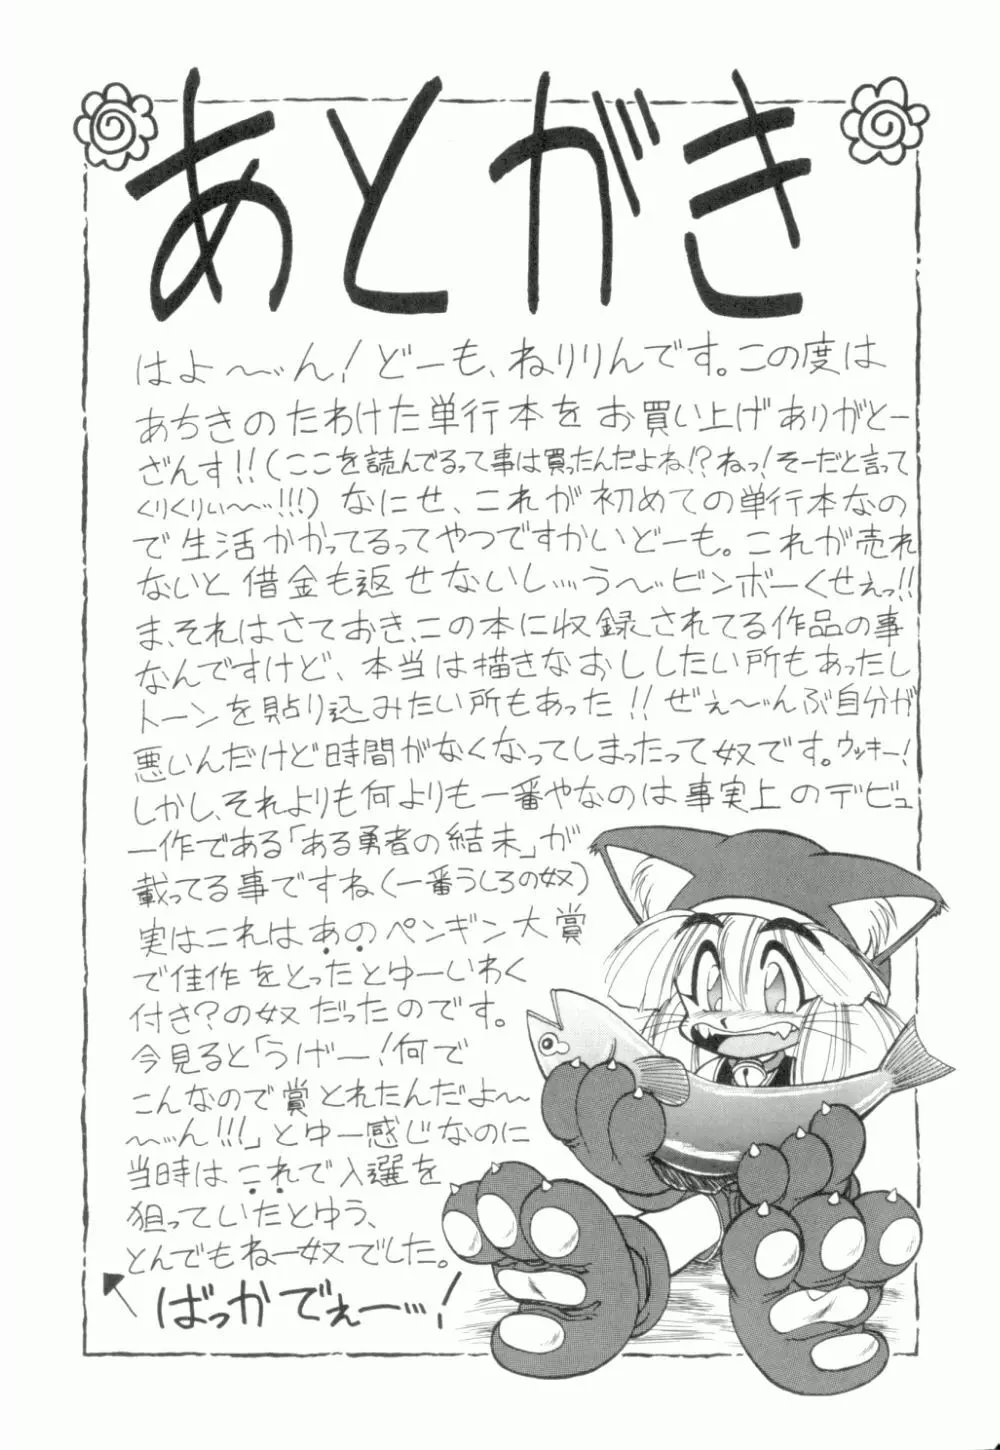 あとがき
はよ〜〜ん！どーも、ねりりんです。この度は
あちきのたわけた単行本をお買い上げありがとー
ざんす！！（ここを読んでるって事は買ったんだよね！？ねっ！そーだと言って
くりくりぃ〜〜！！！）なにせ、これが初めての単行本なの
で生活かかってるってやつですかいどーも。これが売れ
ないと借金も返せないし…う〜…ビンボーくせぇっ！！
ま、それはさておき、この本に収録されてる作品の事
なんですけど、本当は描きなおししたい所もあったし
トーンを貼り込みたい所もあった！！ぜぇ〜〜んぶ自分が
悪いんだけど時間がなくなってしまったって奴です。ウッキー！
しかし、それよりも何よりも一番やなのは事実上のデビュ
ー作である「ある勇者の結末」が
載ってる事ですね（一番うしろの奴）
実はこれはあのペンギン大賞
で佳作をとったとゆーいわく
付き？の奴だったのです。
今見ると「うげー！何で
こんなので賞とれたんだよ〜
〜…ん！！！」とゆー感じなのに
当時はこれで入選を
狙っていたとゆう、
とんでもねー奴でした。
ばっかでぇー…！